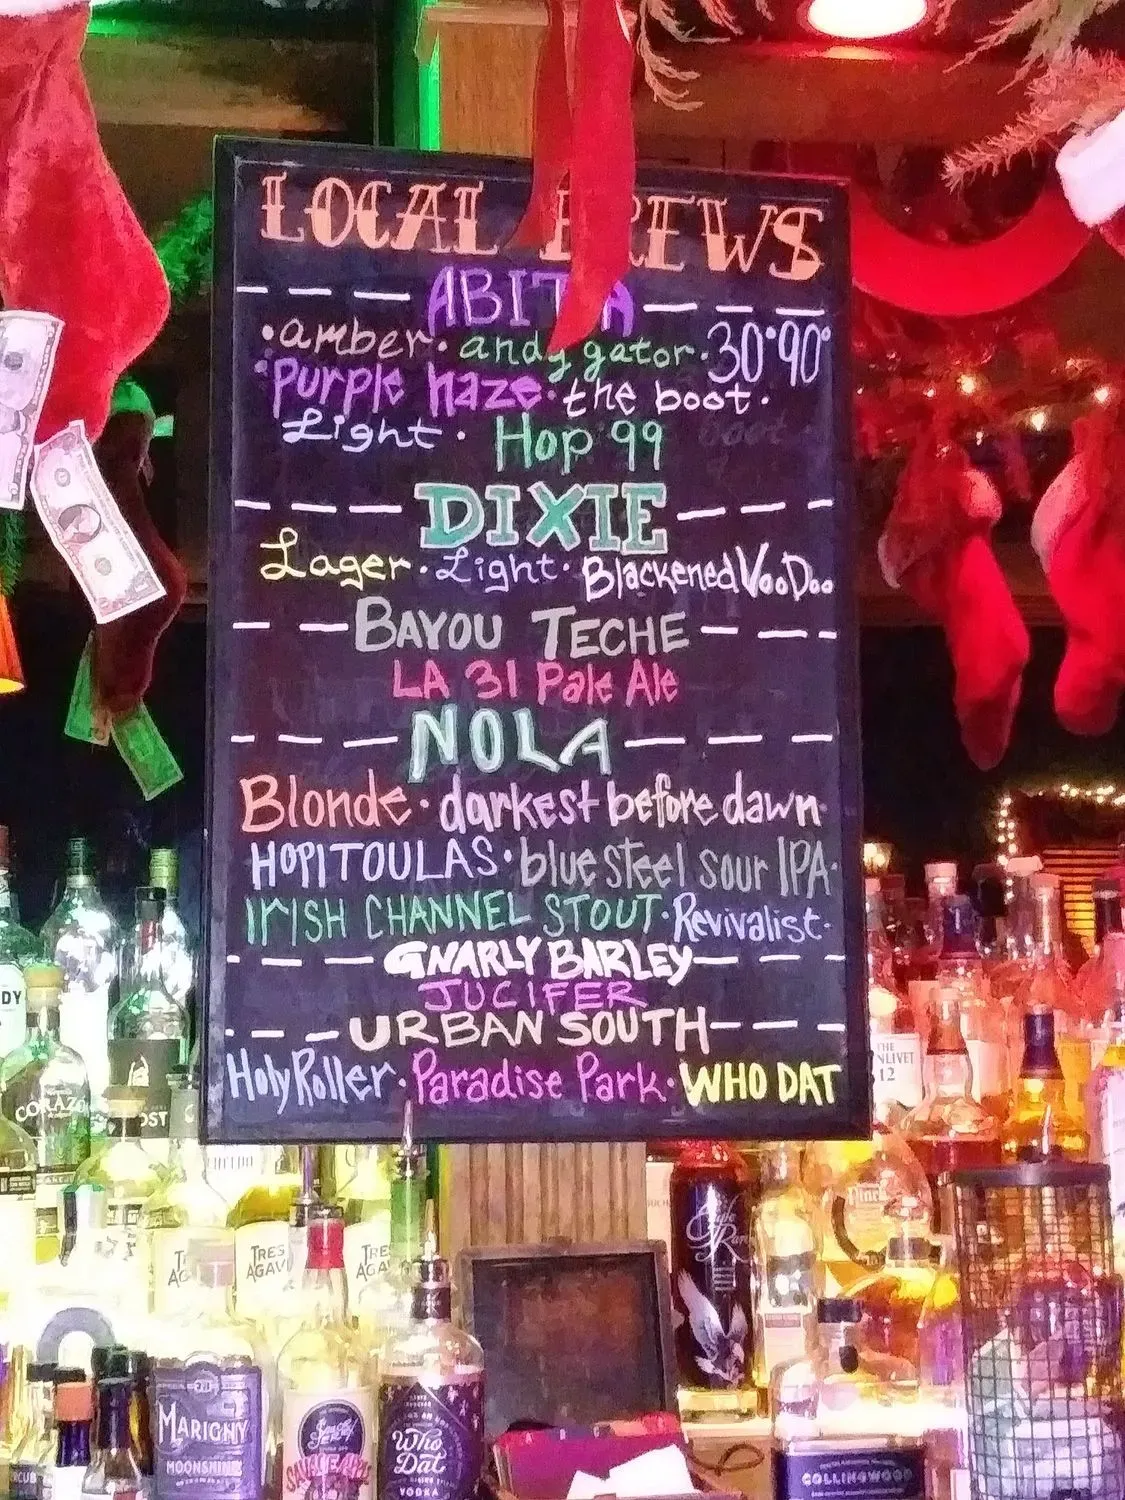 LOCAL BREWS
ABITA
• amber • andygator • 30°90°
• Purple haze • the boot •
Light • Hop 99
boot
DIXIE
Lager • Light • Blackened VooDoo
BAYOU TECHE
LA 31 Pale Ale
NOLA
Blonde • darkest before dawn •
HOPITOULAS • blue steel sour IPA •
IrISH CHANNEL STOUT • Revivalist •
GNARLY BARLEY
JUCIFER
URBAN SOUTH
Holy Roller • Paradise Park • WHO DAT
CORAZO
THE
NLIVET
12
OST
TRES
AGAV
TRES
AGA
MARIGNY
MOONSHINE
Who
Dat
VODKA
COLLINGWOOD